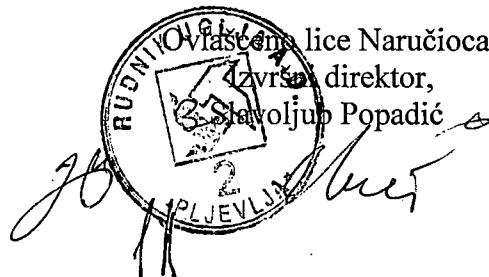 Ovlašćeno lice Naručioca
Izvršni direktor,
Slavoljub Popadić
RUDNIK UGLJA A.D.
2
PLJEVLJA